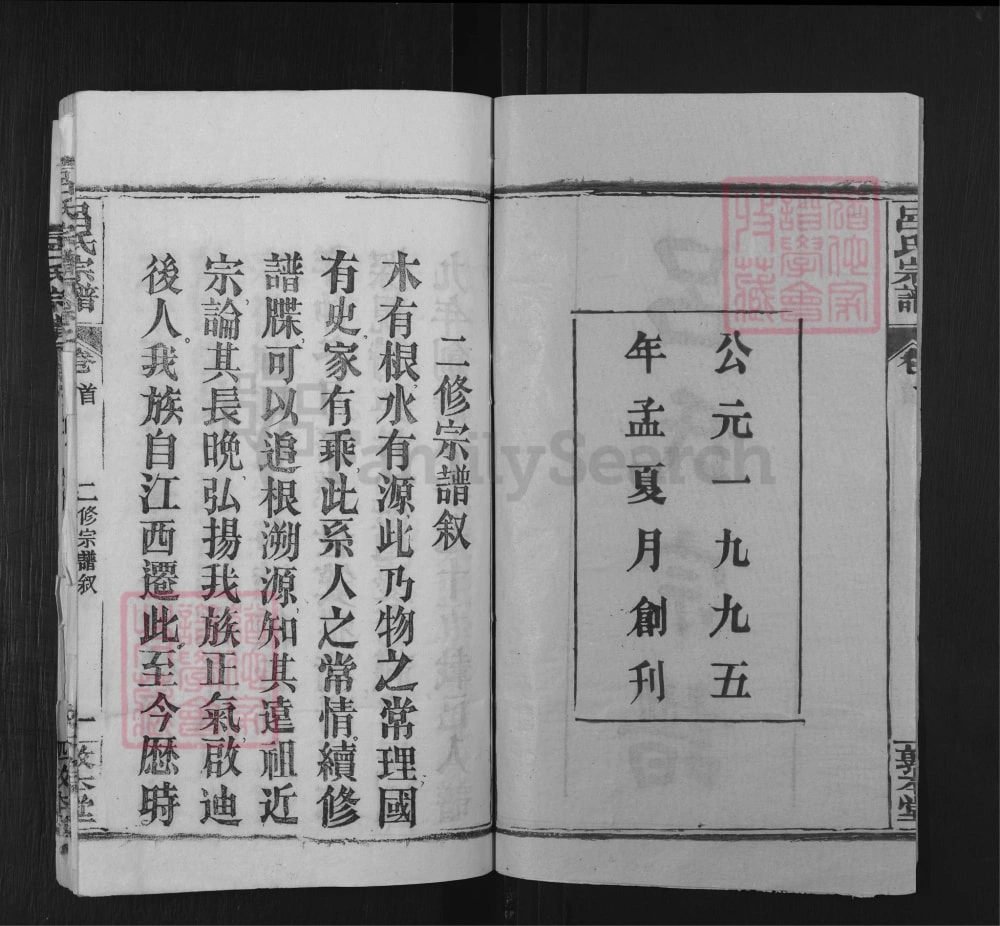 呂氏宗譜
公元一九九五
年孟夏月創刊
二修宗譜叙
木有根水有源此乃物之常理國
有史家有乘此系人之常情續修
譜牒可以追根溯源知其遠祖近
宗論其長晚弘揚我族正氣啟迪
後人我族自江西遷此至今歷時
呂氏宗譜
卷首
二修宗譜叙
一
FamilySearch